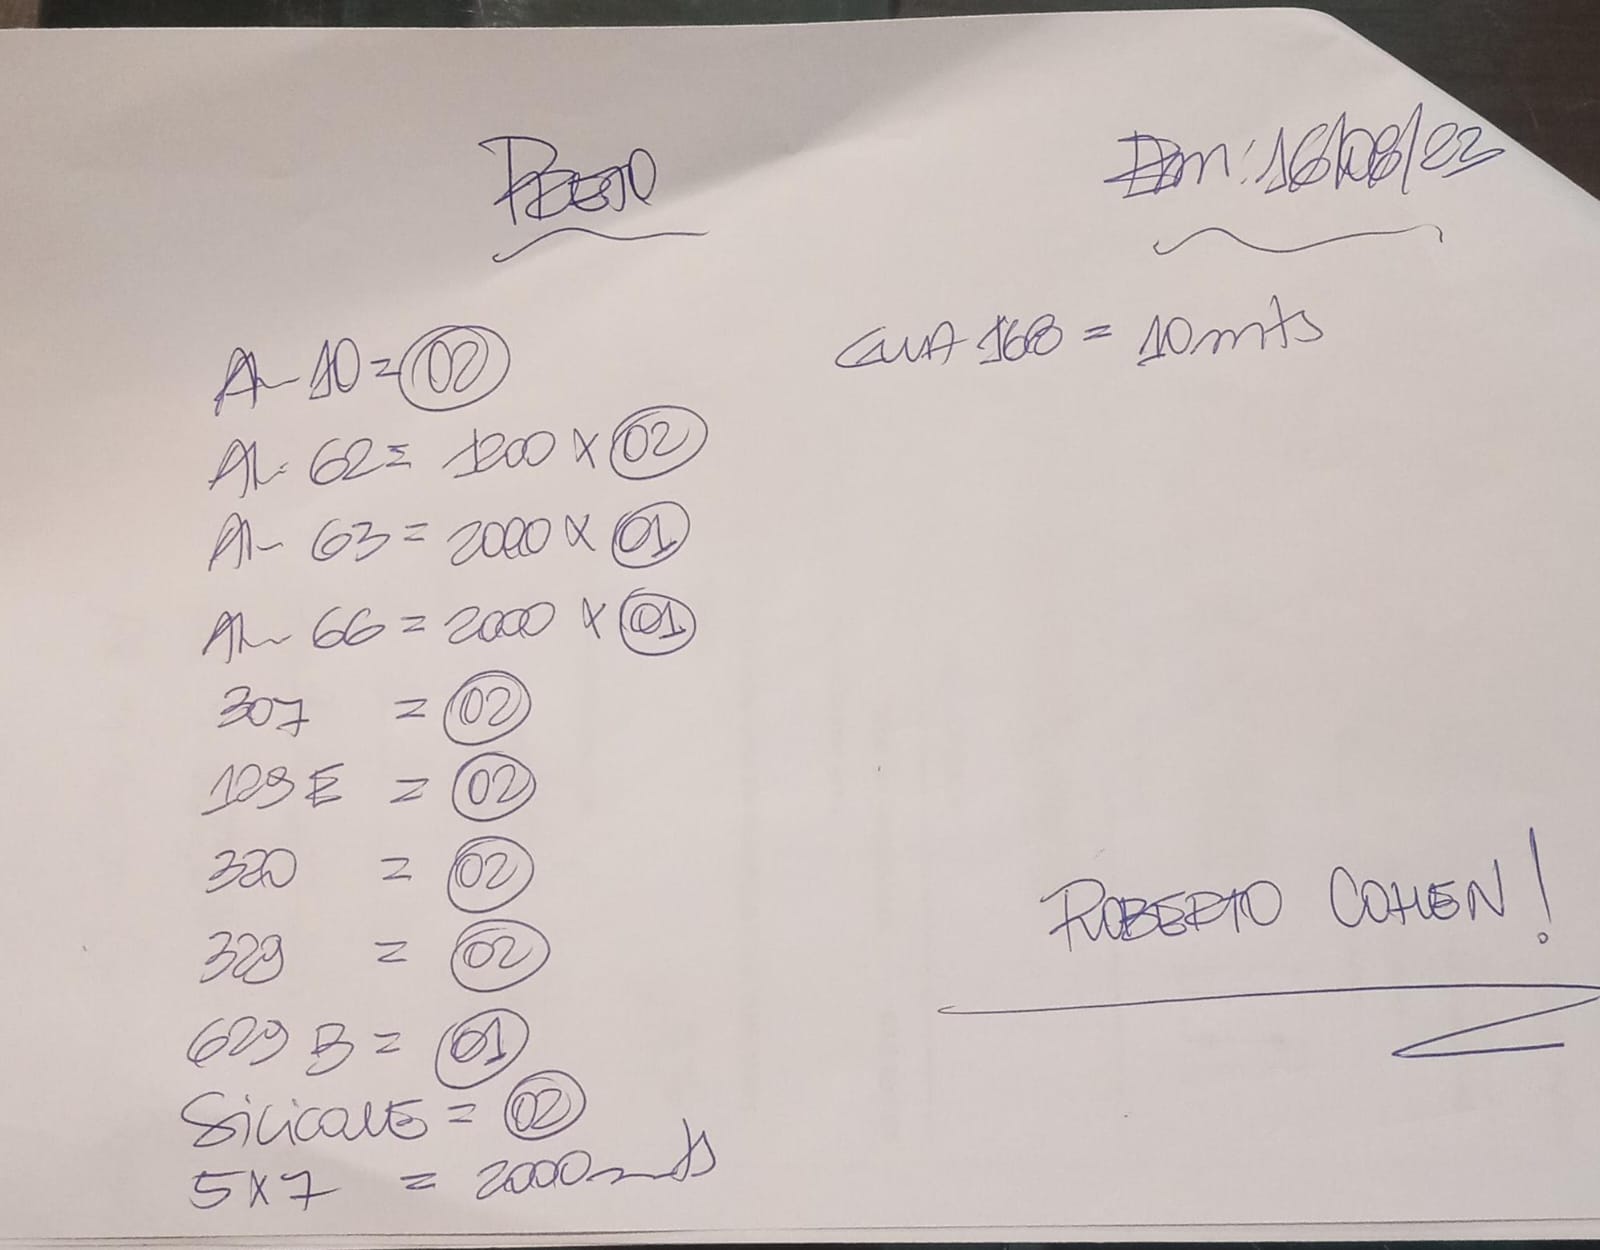 PRETO
Em: 16/08/22
A-10=02
AL- 62= 1200 x 02
AL- 63= 2000 x 01
AL- 66= 2000 x 01
307 = 02
129 E = 02
320 = 02
329 = 02
629 B = 01
Silicone = 02
5x7 = 2000 mts
168 = 10 mts
ROBERTO COHEN!